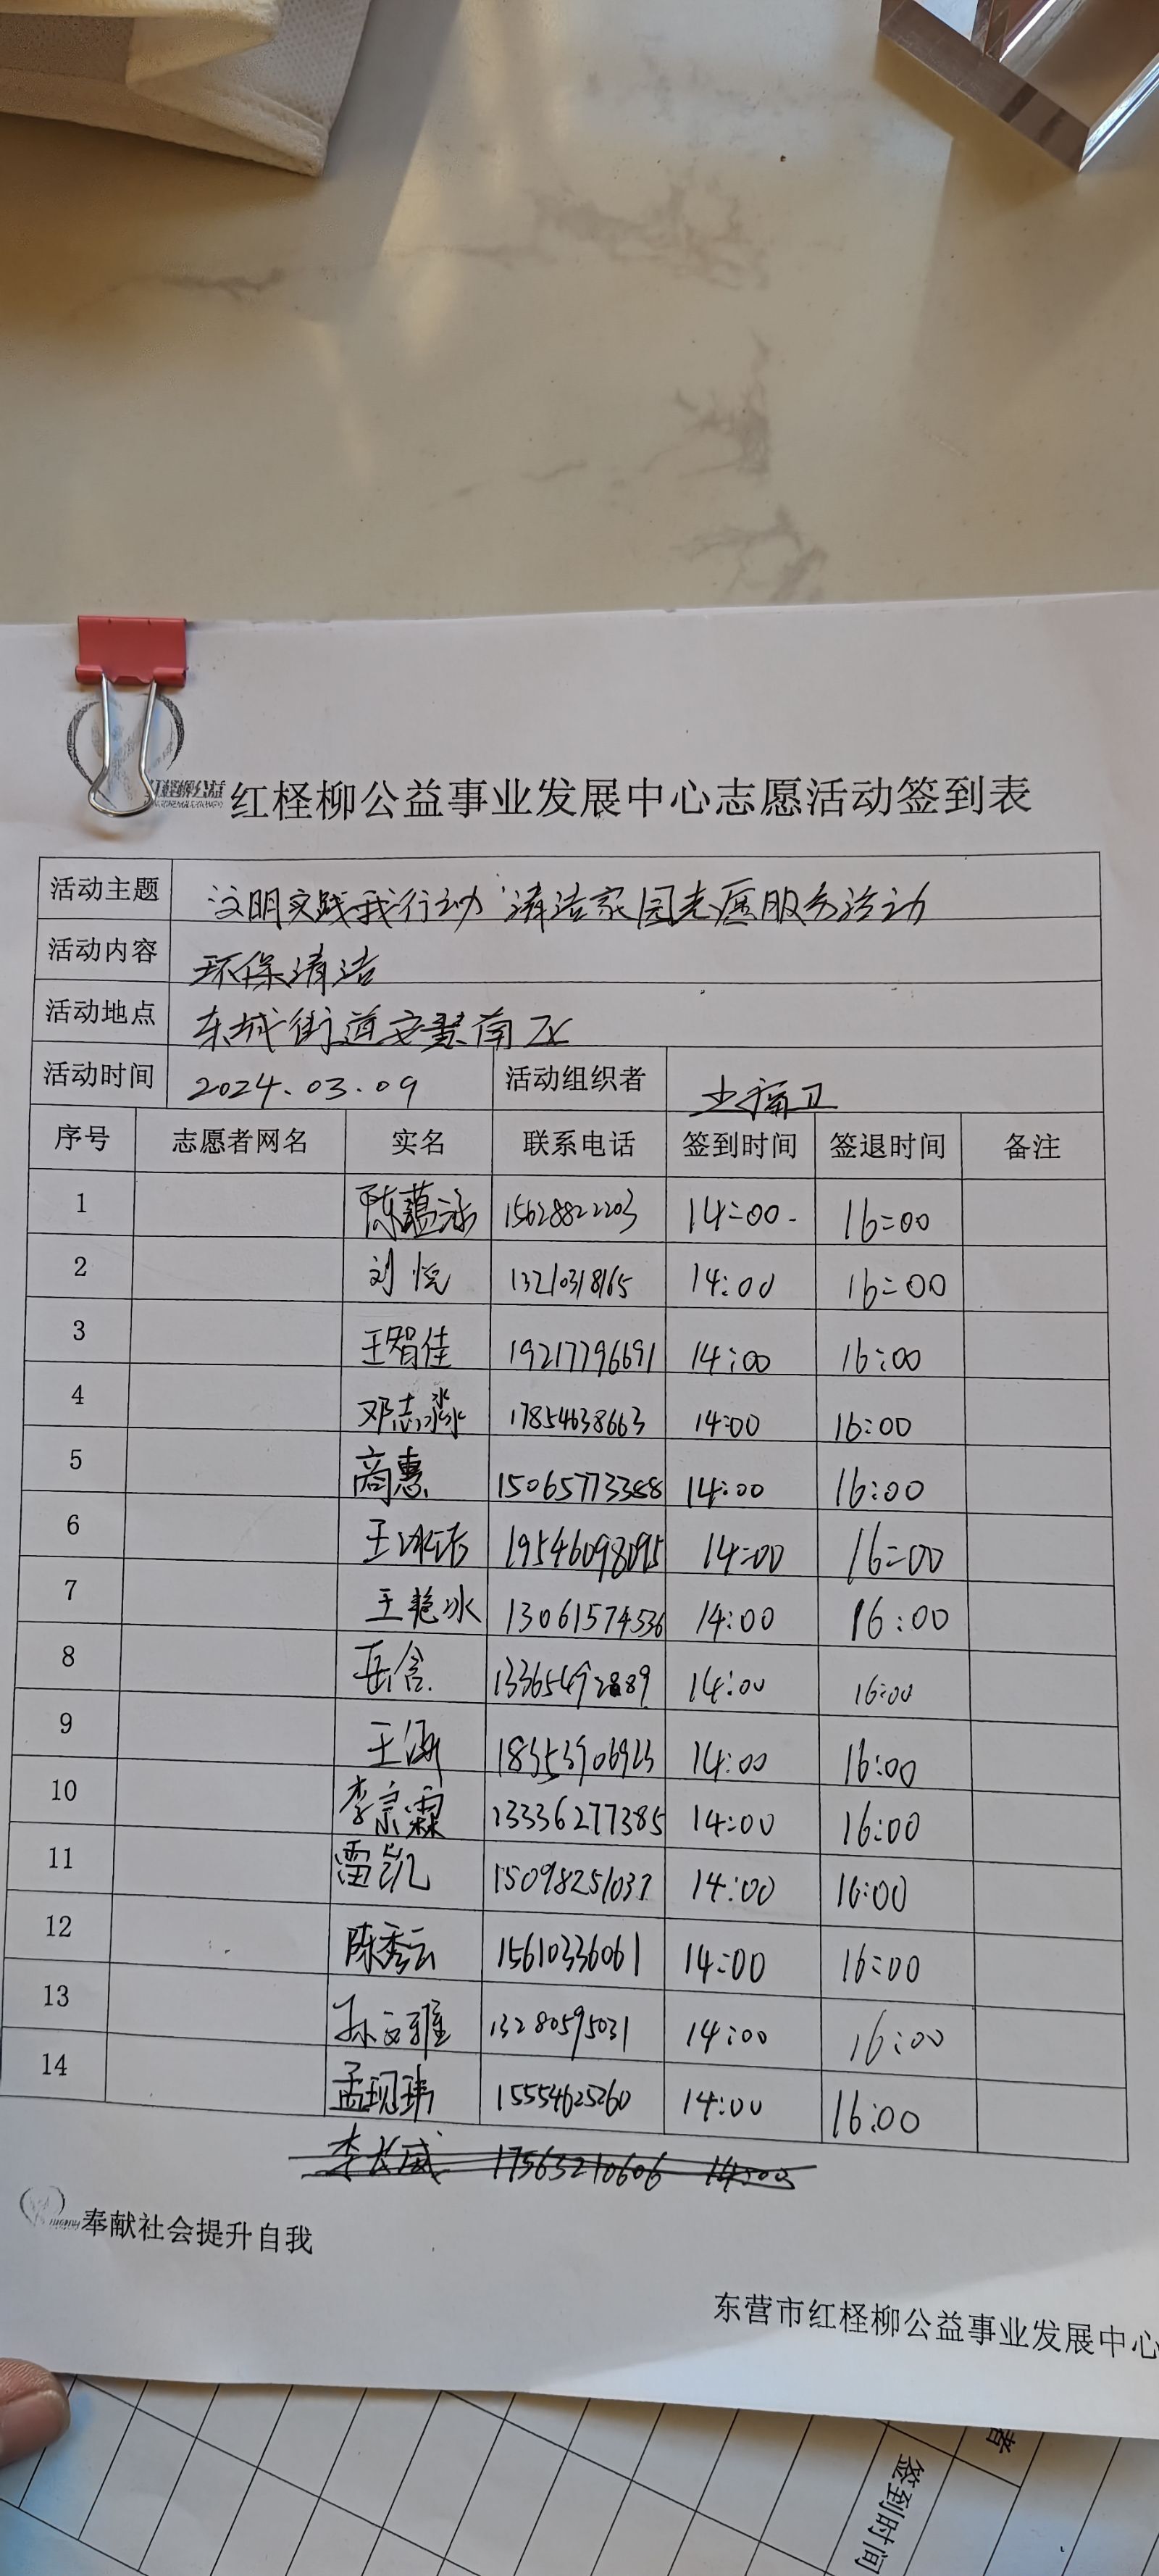 红柽柳公益事业发展中心志愿活动签到表
活动主题 文明实践我行动 清洁家园志愿服务活动
活动内容 环保清洁
活动地点 东城街道安慧南区
活动时间 2024.03.09 活动组织者
序号 志愿者网名 实名 联系电话 签到时间 签退时间 备注
1 陈蕴泳 15628822203 14:00 16:00
2 刘悦 13210318165 14:00 16:00
3 王智佳 19217796691 14:00 16:00
4 邓志淼 17854638663 14:00 16:00
5 商惠 15065773388 14:00 16:00
6 王冰洁 19546098095 14:00 16:00
7 王艳冰 13061574536 14:00 16:00
8 岳含 13365492889 14:00 16:00
9 王涵 18353906923 14:00 16:00
10 李宗霖 13336277385 14:00 16:00
11 雷凯 15098251037 14:00 16:00
12 陈秀云 15610336061 14:00 16:00
13 孙文雅 13280595031 14:00 16:00
14 孟现玮 15554625260 14:00 16:00
李长威 17563210606 14:00
奉献社会提升自我
东营市红柽柳公益事业发展中心
者
签到时间